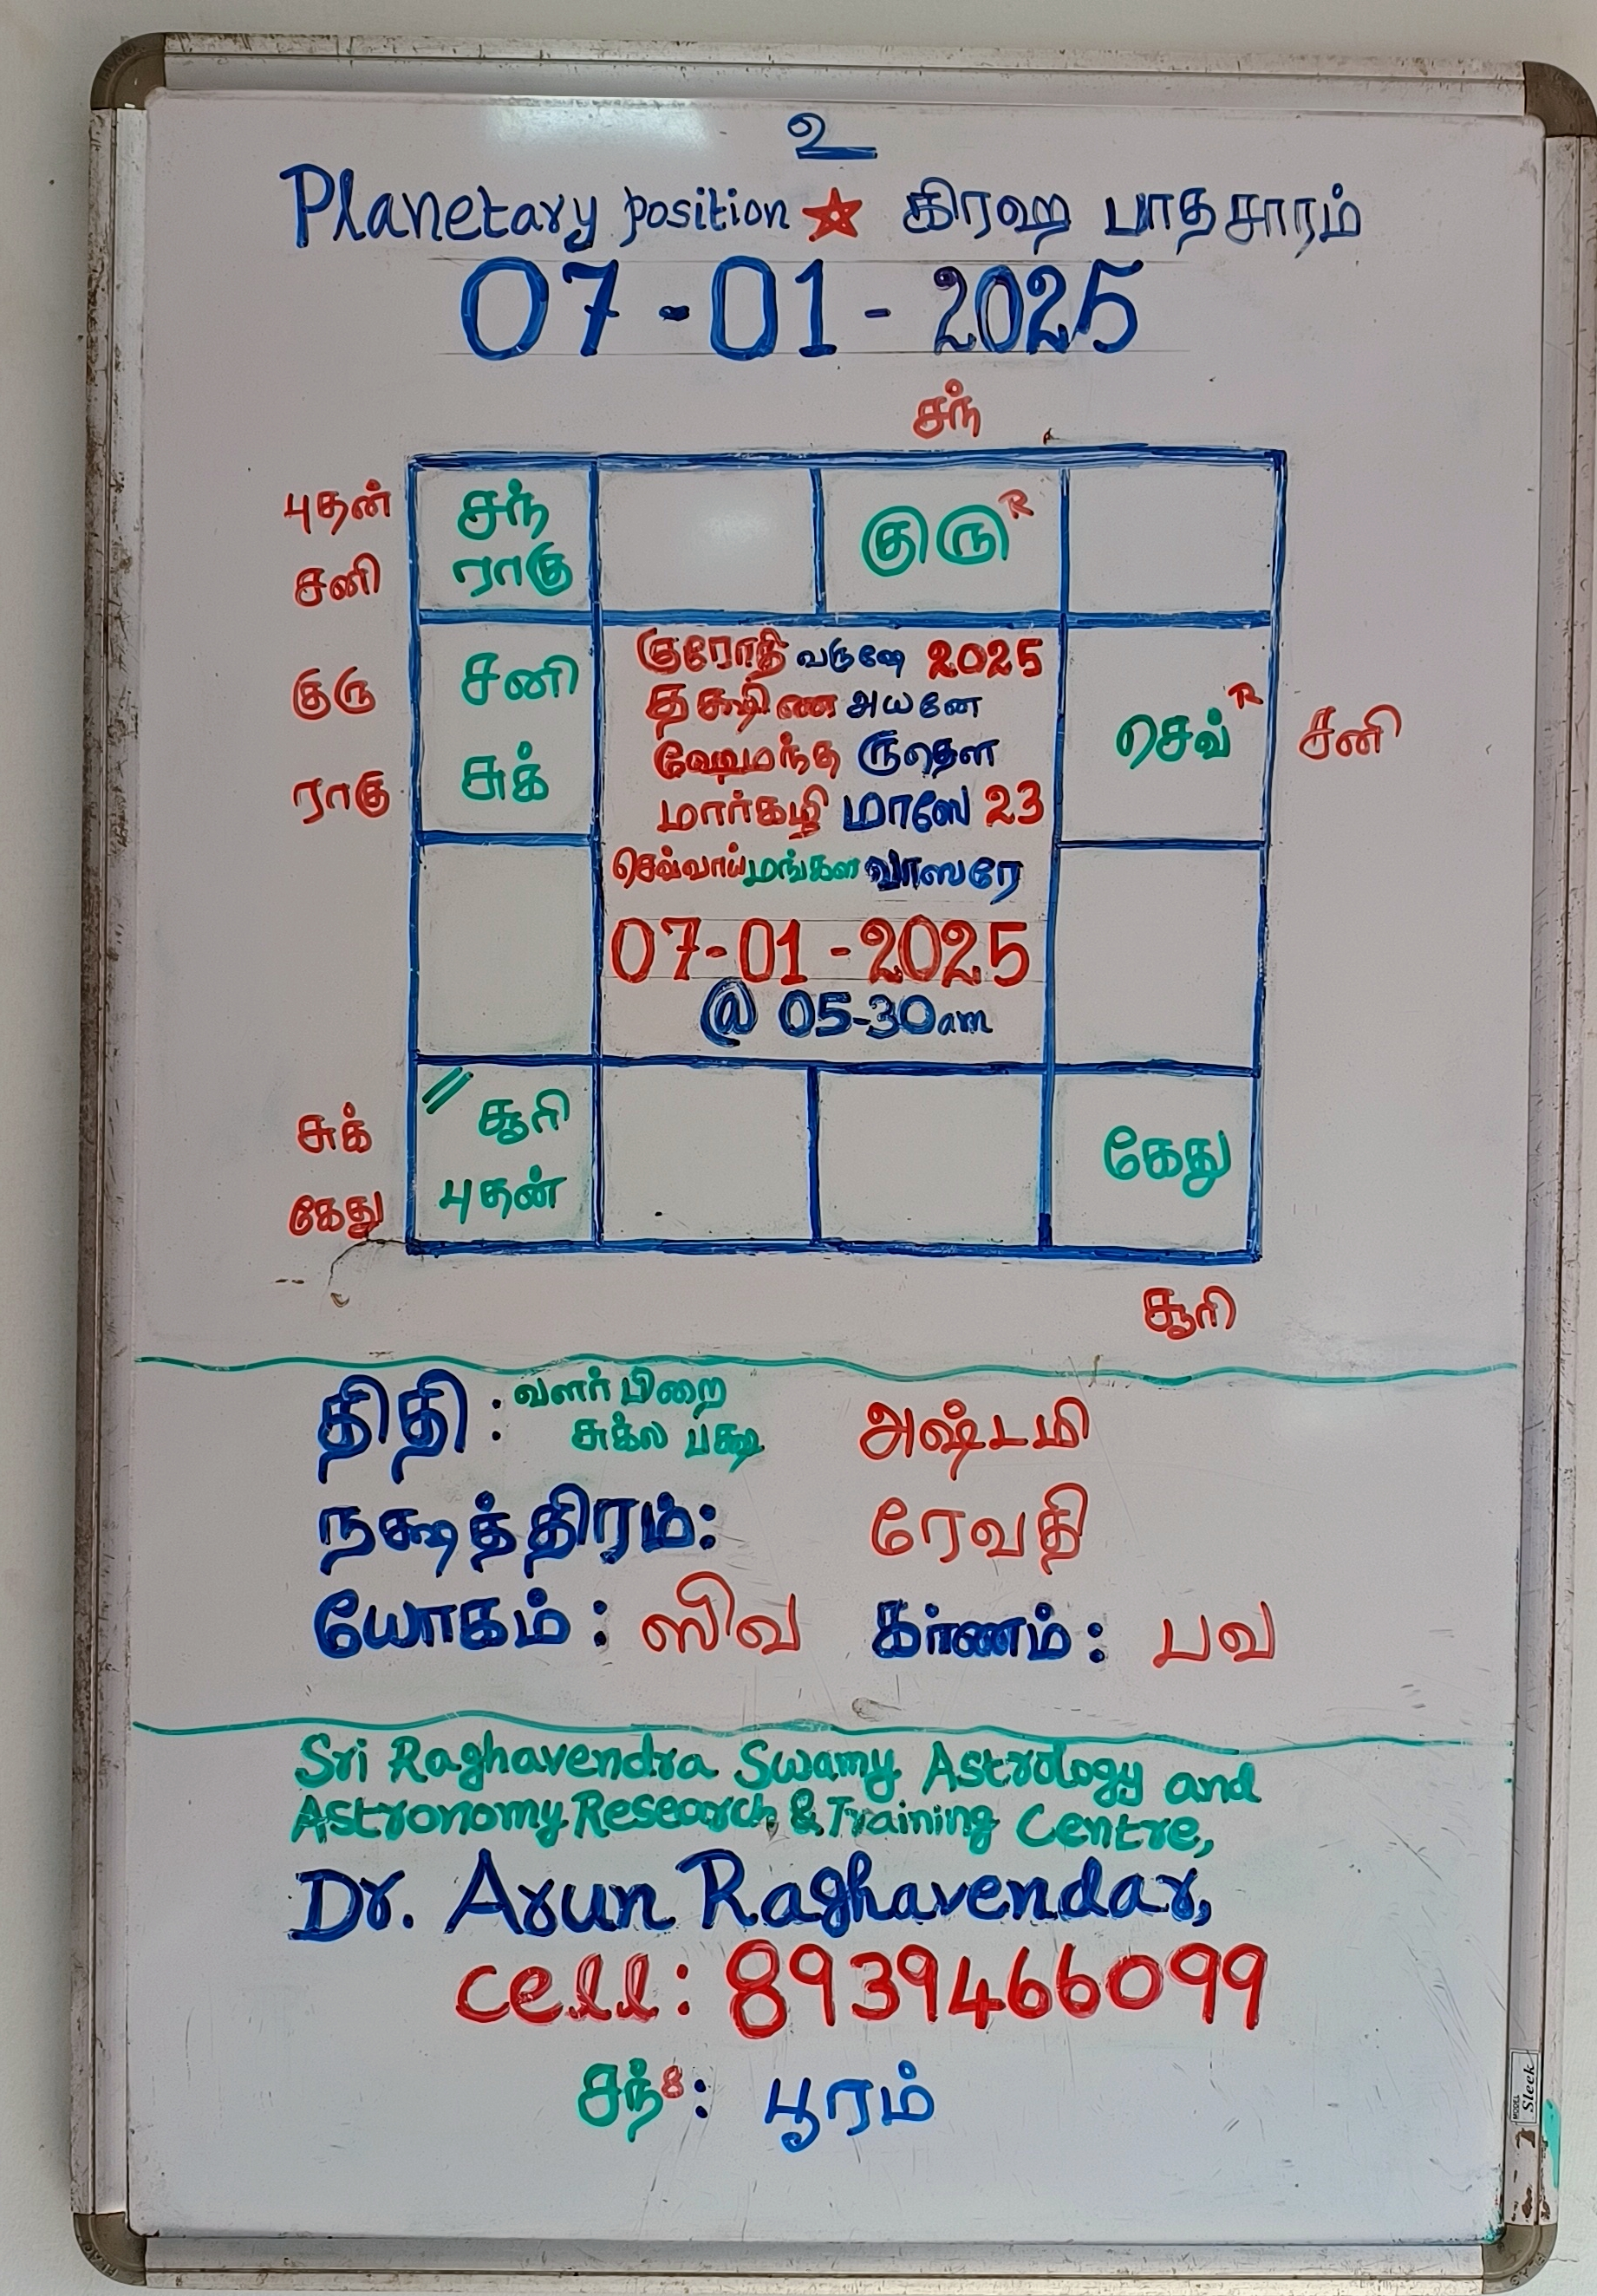 உ
Planetary position ☆ கிரஹ பாதசாரம்
07-01-2025
சந்
புதன்
சனி
குரு
ராகு
சுக்
கேது
சந்
ராகு
குரு R
சனி
சுக்
குரோதி வருஷே 2025
தக்ஷிண அயனே
ஹேமந்த ருதௌ
மார்கழி மாஸே 23
செவ்வாய் மங்கள வாஸரே
07-01-2025
@ 05-30am
செவ் R
சனி
சூரி
புதன்
கேது
சூரி
திதி : வளர் பிறை
சுக்ல பக்ஷ அஷ்டமி
நக்ஷத்திரம்: ரேவதி
யோகம் : ஸிவ கர்ணம் : பவ
Sri Raghavendra Swamy Astrology and
Astronomy Research & Training Centre,
Dr. Arun Raghavendar,
cell: 8939466099
சந் 8 : பூரம்
MODEL Sleek